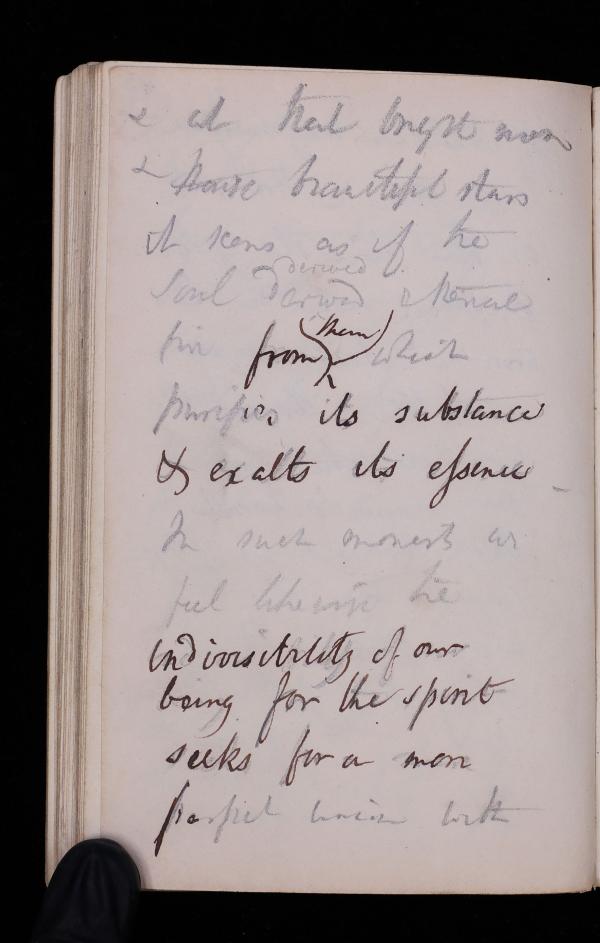 & at that bright moon
& those beautiful stars
it seems as if the
derived
Soul derived etherial
fire from (them) which
purifies its substance
& exalts its essence –
In such moments we
feel likewise the
indivisibility of our
being for the spirit
seeks for a more
perfect union with